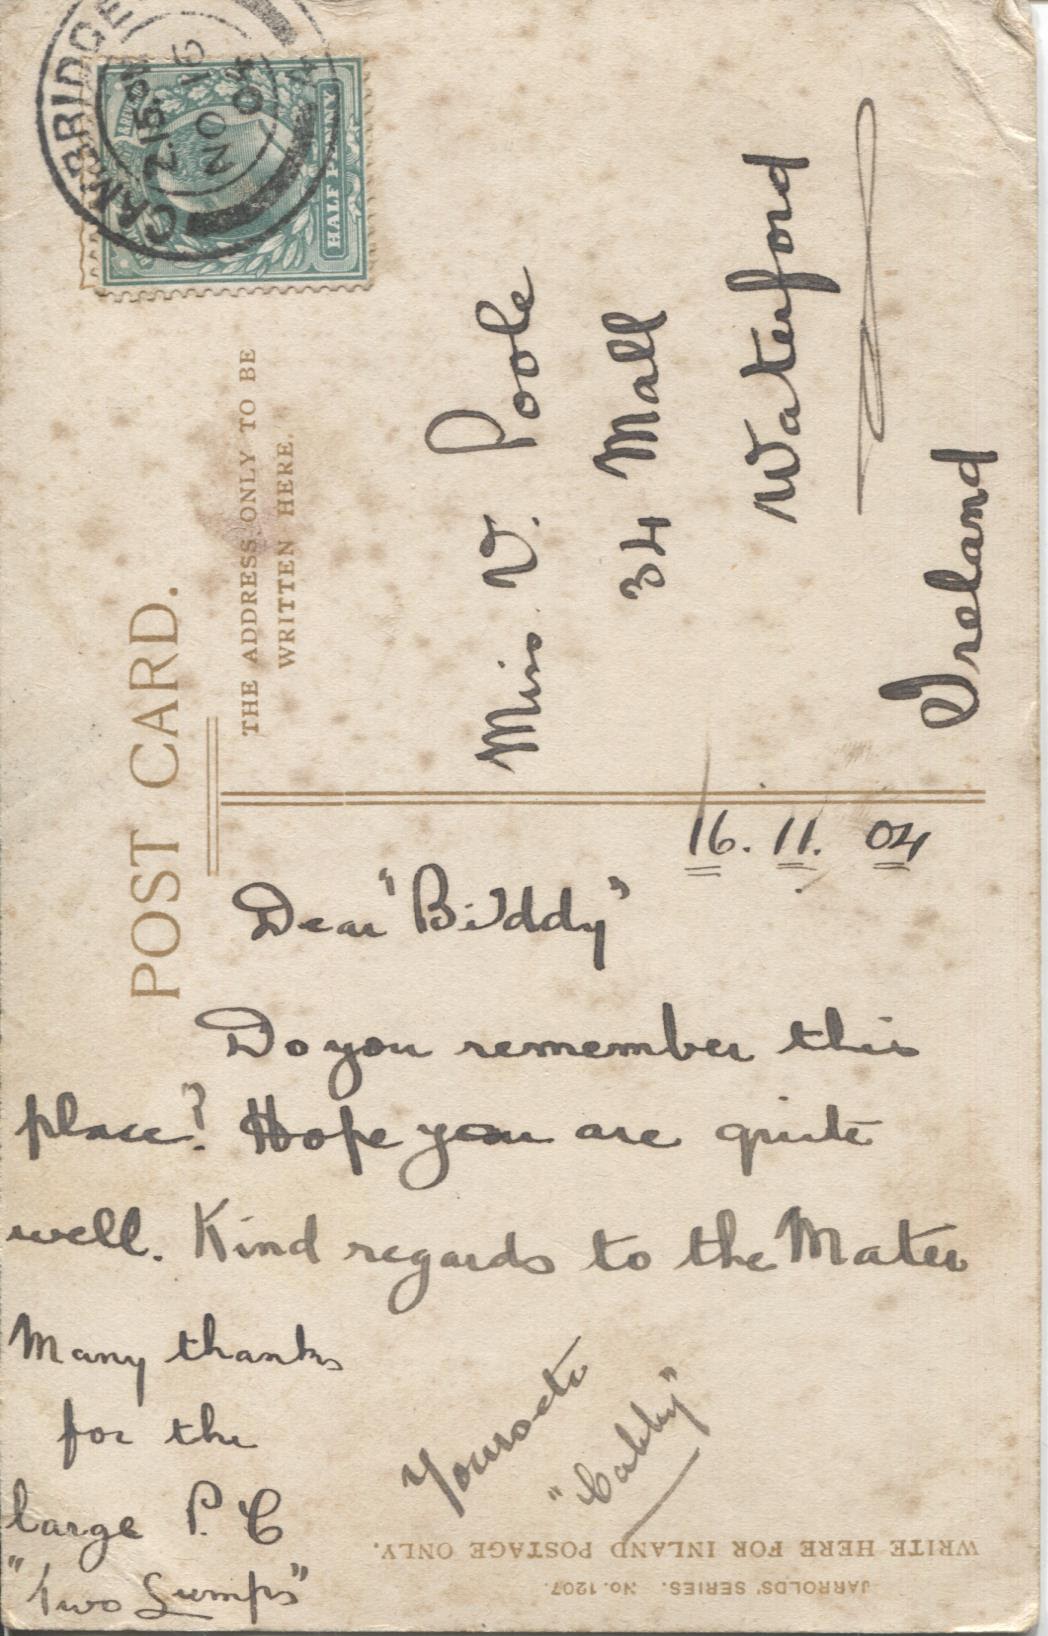 POST CARD.
THE ADDRESS ONLY TO BE
WRITTEN HERE.
CAMBRIDGE
2.15 PM
NO 16
04
HALF PENNY
Miss V. Poole
34 Mall
Waterford
Ireland
16. 11. 04
Dear "Biddy"
Do you remember this
place? Hope you are quite
well. Kind regards to the Mater
Many thanks
for the
large P. C
"Two Lumps"
Yours etc
"Cabby"
WRITE HERE FOR INLAND POSTAGE ONLY.
JARROLDS' SERIES. No. 1207.